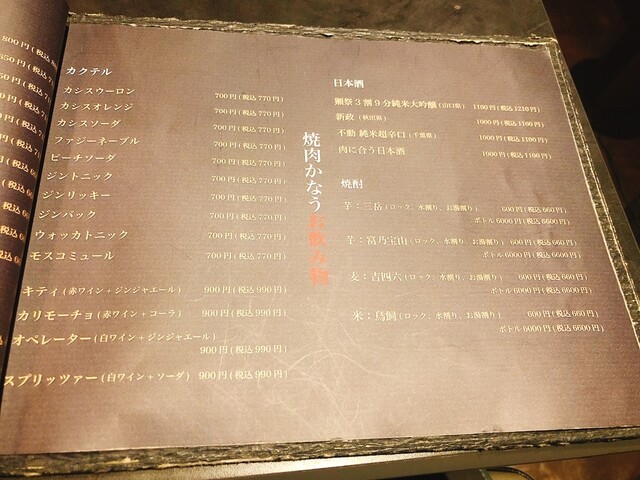 カクテル
カシスウーロン 700円(税込770円)
カシスオレンジ 700円(税込770円)
カシスソーダ 700円(税込770円)
ファジーネーブル 700円(税込770円)
ピーチソーダ 700円(税込770円)
ジントニック 700円(税込770円)
ジンリッキー 700円(税込770円)
ジンバック 700円(税込770円)
ウォッカトニック 700円(税込770円)
モスコミュール 700円(税込770円)
キティ(赤ワイン+ジンジャエール) 900円(税込990円)
カリモーチョ(赤ワイン+コーラ) 900円(税込990円)
オペレーター(白ワイン+ジンジャエール)
900円(税込990円)
スプリッツァー(白ワイン+ソーダ) 900円(税込990円)
焼肉かなうお飲み物
日本酒
獺祭3割9分純米大吟醸(山口県) 1100円(税込1210円)
新政(秋田県) 1000円(税込1100円)
不動 純米超辛口(千葉県) 1000円(税込1100円)
肉に合う日本酒 1000円(税込1100円)
焼酎
芋:三岳(ロック、水割り、お湯割り) 600円(税込660円)
ボトル6000円(税込6600円)
芋:富乃宝山(ロック、水割り、お湯割り) 600円(税込660円)
ボトル6000円(税込6600円)
麦:吉四六(ロック、水割り、お湯割り) 600円(税込660円)
ボトル6000円(税込6600円)
米:鳥飼(ロック、水割り、お湯割り) 600円(税込660円)
ボトル6000円(税込6600円)